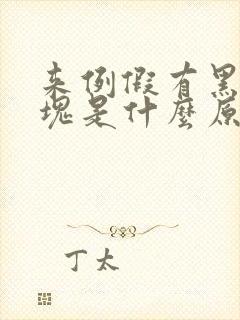 来例假有黑
塊是什麼原
丁太